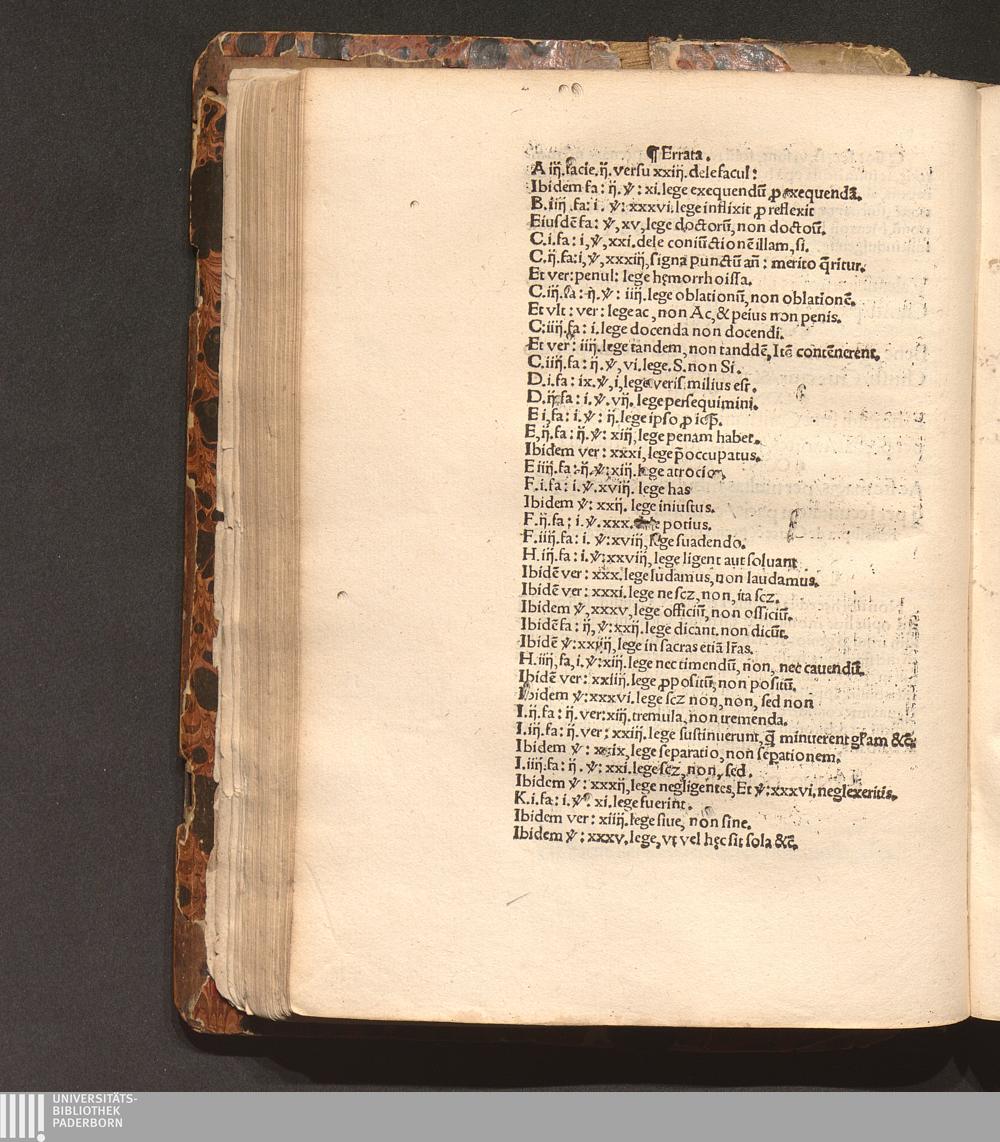 ¶ Errata.
A iij. facie. ij. versu xxiij. dele facul:
Ibidem fa: ij. ꝟ: xi. lege exequendū ꝓ exequendā.
B. iiij. fa: i. ꝟ: xxxvi. lege inflixit ꝓ reflexit
Eiusdē fa: ꝟ, xv, lege doctorū, non doctoū.
C. i. fa: i, ꝟ, xxi. dele coniūctionē illam, si.
C. ij. fa: i, ꝟ, xxxiij, signa punctū añ: merito q̄ritur.
Et ver: penul: lege hęmorrhoissa.
C. iij. fa: ij. ꝟ: iiij. lege oblationū, non oblationē.
Et vlt: ver: lege ac, non Ac, & peius non penis.
C: iiij. fa: i. lege docenda non docendi.
Et ver: iiij. lege tandem, non tanddē, Itē contēnerent.
C. iiij. fa: ij. ꝟ, vi. lege. S. non Si.
D. i. fa: ix. ꝟ, i, lege verisimilius est.
D. ij. fa: i. ꝟ. vij. lege persequimini.
E i, fa: i. ꝟ: ij. lege ipso, ꝓ
E, ij. fa: ij. ꝟ: xiij, lege penam habet.
Ibidem ver: xxxi, lege p̄occupatus.
E iiij. fa: ij. ꝟ: xiij. lege
F. i. fa: i. ꝟ. xviij. lege has
Ibidem ꝟ: xxij. lege iniustus.
F. ij. fa; i. ꝟ. xxx. potius.
F. iiij. fa: i. ꝟ: xviij, lege suadendo.
H. iij. fa: i. ꝟ: xxviij, lege ligent aut soluant
Ibidē ver: xxx. lege ludamus, non laudamus.
Ibidē ver: xxxi. lege ne scz, non, ita scz.
Ibidem ꝟ, xxxv, lege officiū, non officiū.
Ibidē fa: ij, ꝟ: xxij. lege dicant. non dicūt.
Ibidē ꝟ: lege in sacras etiā lr̄as.
H. iiij, fa, i. ꝟ: xiij. lege nec timendū, non, nec cauendū.
Ibidē ver: xxiiij. lege ꝓpositū, non positū.
Ibidem ꝟ: xxxvi. lege scz non, non, sed non
I. ij. fa: ij. ver: xiij. tremula, non tremenda.
I. iij. fa: ij. ver: xxiij. lege sustinuerunt, q̄ minuerent gl'am &c̄.
Ibidem ꝟ: lege separatio, non sepationem.
I. iiij. fa: ij. ꝟ: xxi. lege scz, non, sed.
Ibidem ꝟ: xxxij, lege negligentes, Et ꝟ: xxxvi. neglexeritis.
K. i. fa: i. ꝟ. xi. lege fuerint.
Ibidem ver: xiiij. lege siue, non sine.
Ibidem ꝟ: xxxv. lege, vt vel hęc sit sola &c̄.
UNIVERSITÄTS-
BIBLIOTHEK
PADERBORN